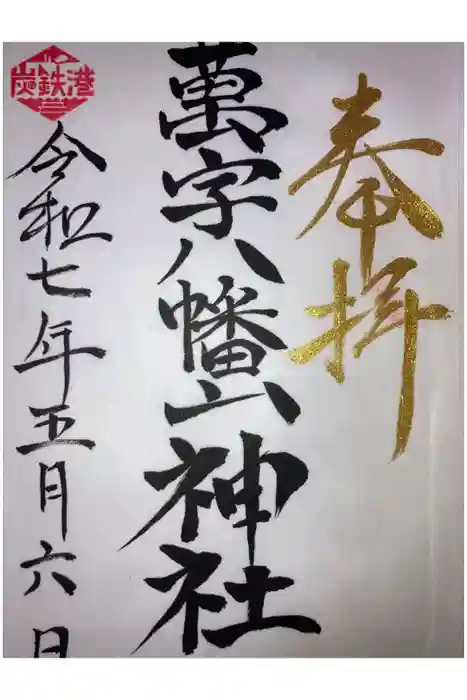 奉拝
萬字八幡山神社
炭鉄港
令和七年五月六日